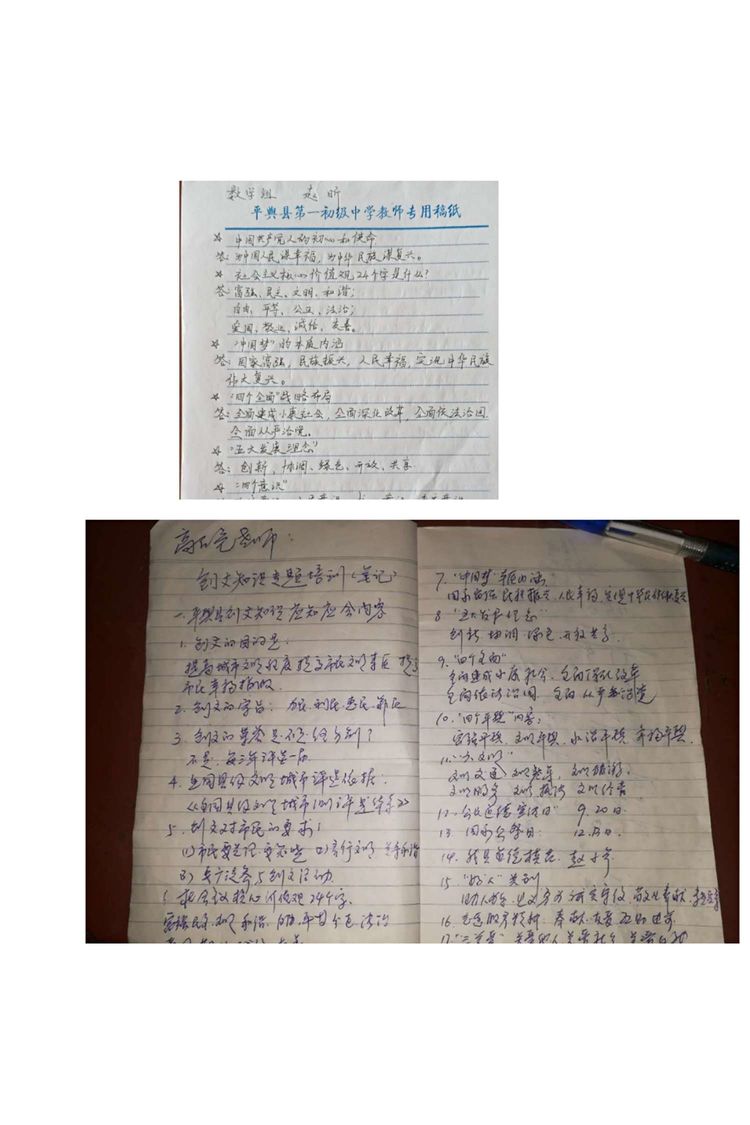 数学组 袁昕
平舆县第一初级中学教师专用稿纸
☆ 中国共产党人的初心和使命
答:为中国人民谋幸福,为中华民族谋复兴。
☆ 社会主义核心价值观24个字是什么?
答:富强、民主、文明、和谐;
自由、平等、公正、法治;
爱国、敬业、诚信、友善。
☆ "中国梦"的本质内涵
答:国家富强,民族振兴,人民幸福,实现中华民族
伟大复兴。
☆ "四个全面"战略布局
答:全面建成小康社会,全面深化改革,全面依法治国,
全面从严治党。
☆ "五大发展理念"
答:创新、协调、绿色、开放、共享
☆ "四个意识"
老师:
创文知识专题培训(笔记)
一、平舆县创文知识应知应会内容
1. 创文的目的是:
提高城市文明程度 提高市民文明素质 提
市民幸福指数
2. 创文的宗旨: 为民 利民 惠民
3. 创文的荣誉是不是终身制?
不是,每三年评选一届.
4. 全国县级文明城市评选依据.
《全国县级文明城市测评体系》
5. 创文对市民的要求:
核心价值观24个字.
富强 民主 文明 和谐. 自由. 平等 公正 法治
7. "中国梦"
国家富强 民族振兴 人民幸福,
8. "五大发展理念"
创新 协调 绿色 开放 共享.
9. "四个全面"
全面建成小康社会. 全面深化改革
全面依法治国. 全面从严治党
10. "四个平舆"内容:
富强平舆. 文明平舆. 平舆. 幸福平舆.
11. "六文明"
文明交通 文明 文明旅游.
文明 文明 文明
12. 9.20日.
13. 国家公祭日: 12.13日.
14.
15. "好人"类别
助人为乐. 见义勇为 诚实守信. 敬业奉献.
16. 志愿服务精神. 奉献. 友爱 互助 进步